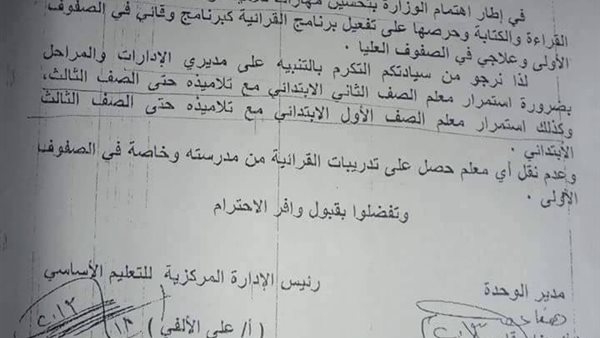 في إطار اهتمام الوزارة بتحسين مهارات
القراءة والكتابة وحرصها على تفعيل برنامج القرائية كبرنامج وقائي في الصفوف
الأولى وعلاجي في الصفوف العليا .
لذا نرجو من سيادتكم التكرم بالتنبيه على مديري الإدارات والمراحل
بضرورة استمرار معلم الصف الثاني الابتدائي مع تلاميذه حتى الصف الثالث،
وكذلك استمرار معلم الصف الأول الابتدائي مع تلاميذه حتى الصف الثالث
الابتدائي .
وعدم نقل أي معلم حصل على تدريبات القرائية من مدرسته وخاصة في الصفوف
الأولى .
وتفضلوا بقبول وافر الاحترام
مدير الوحدة
رئيس الإدارة المركزية للتعليم الأساسي
(أ/ علي الألفي)